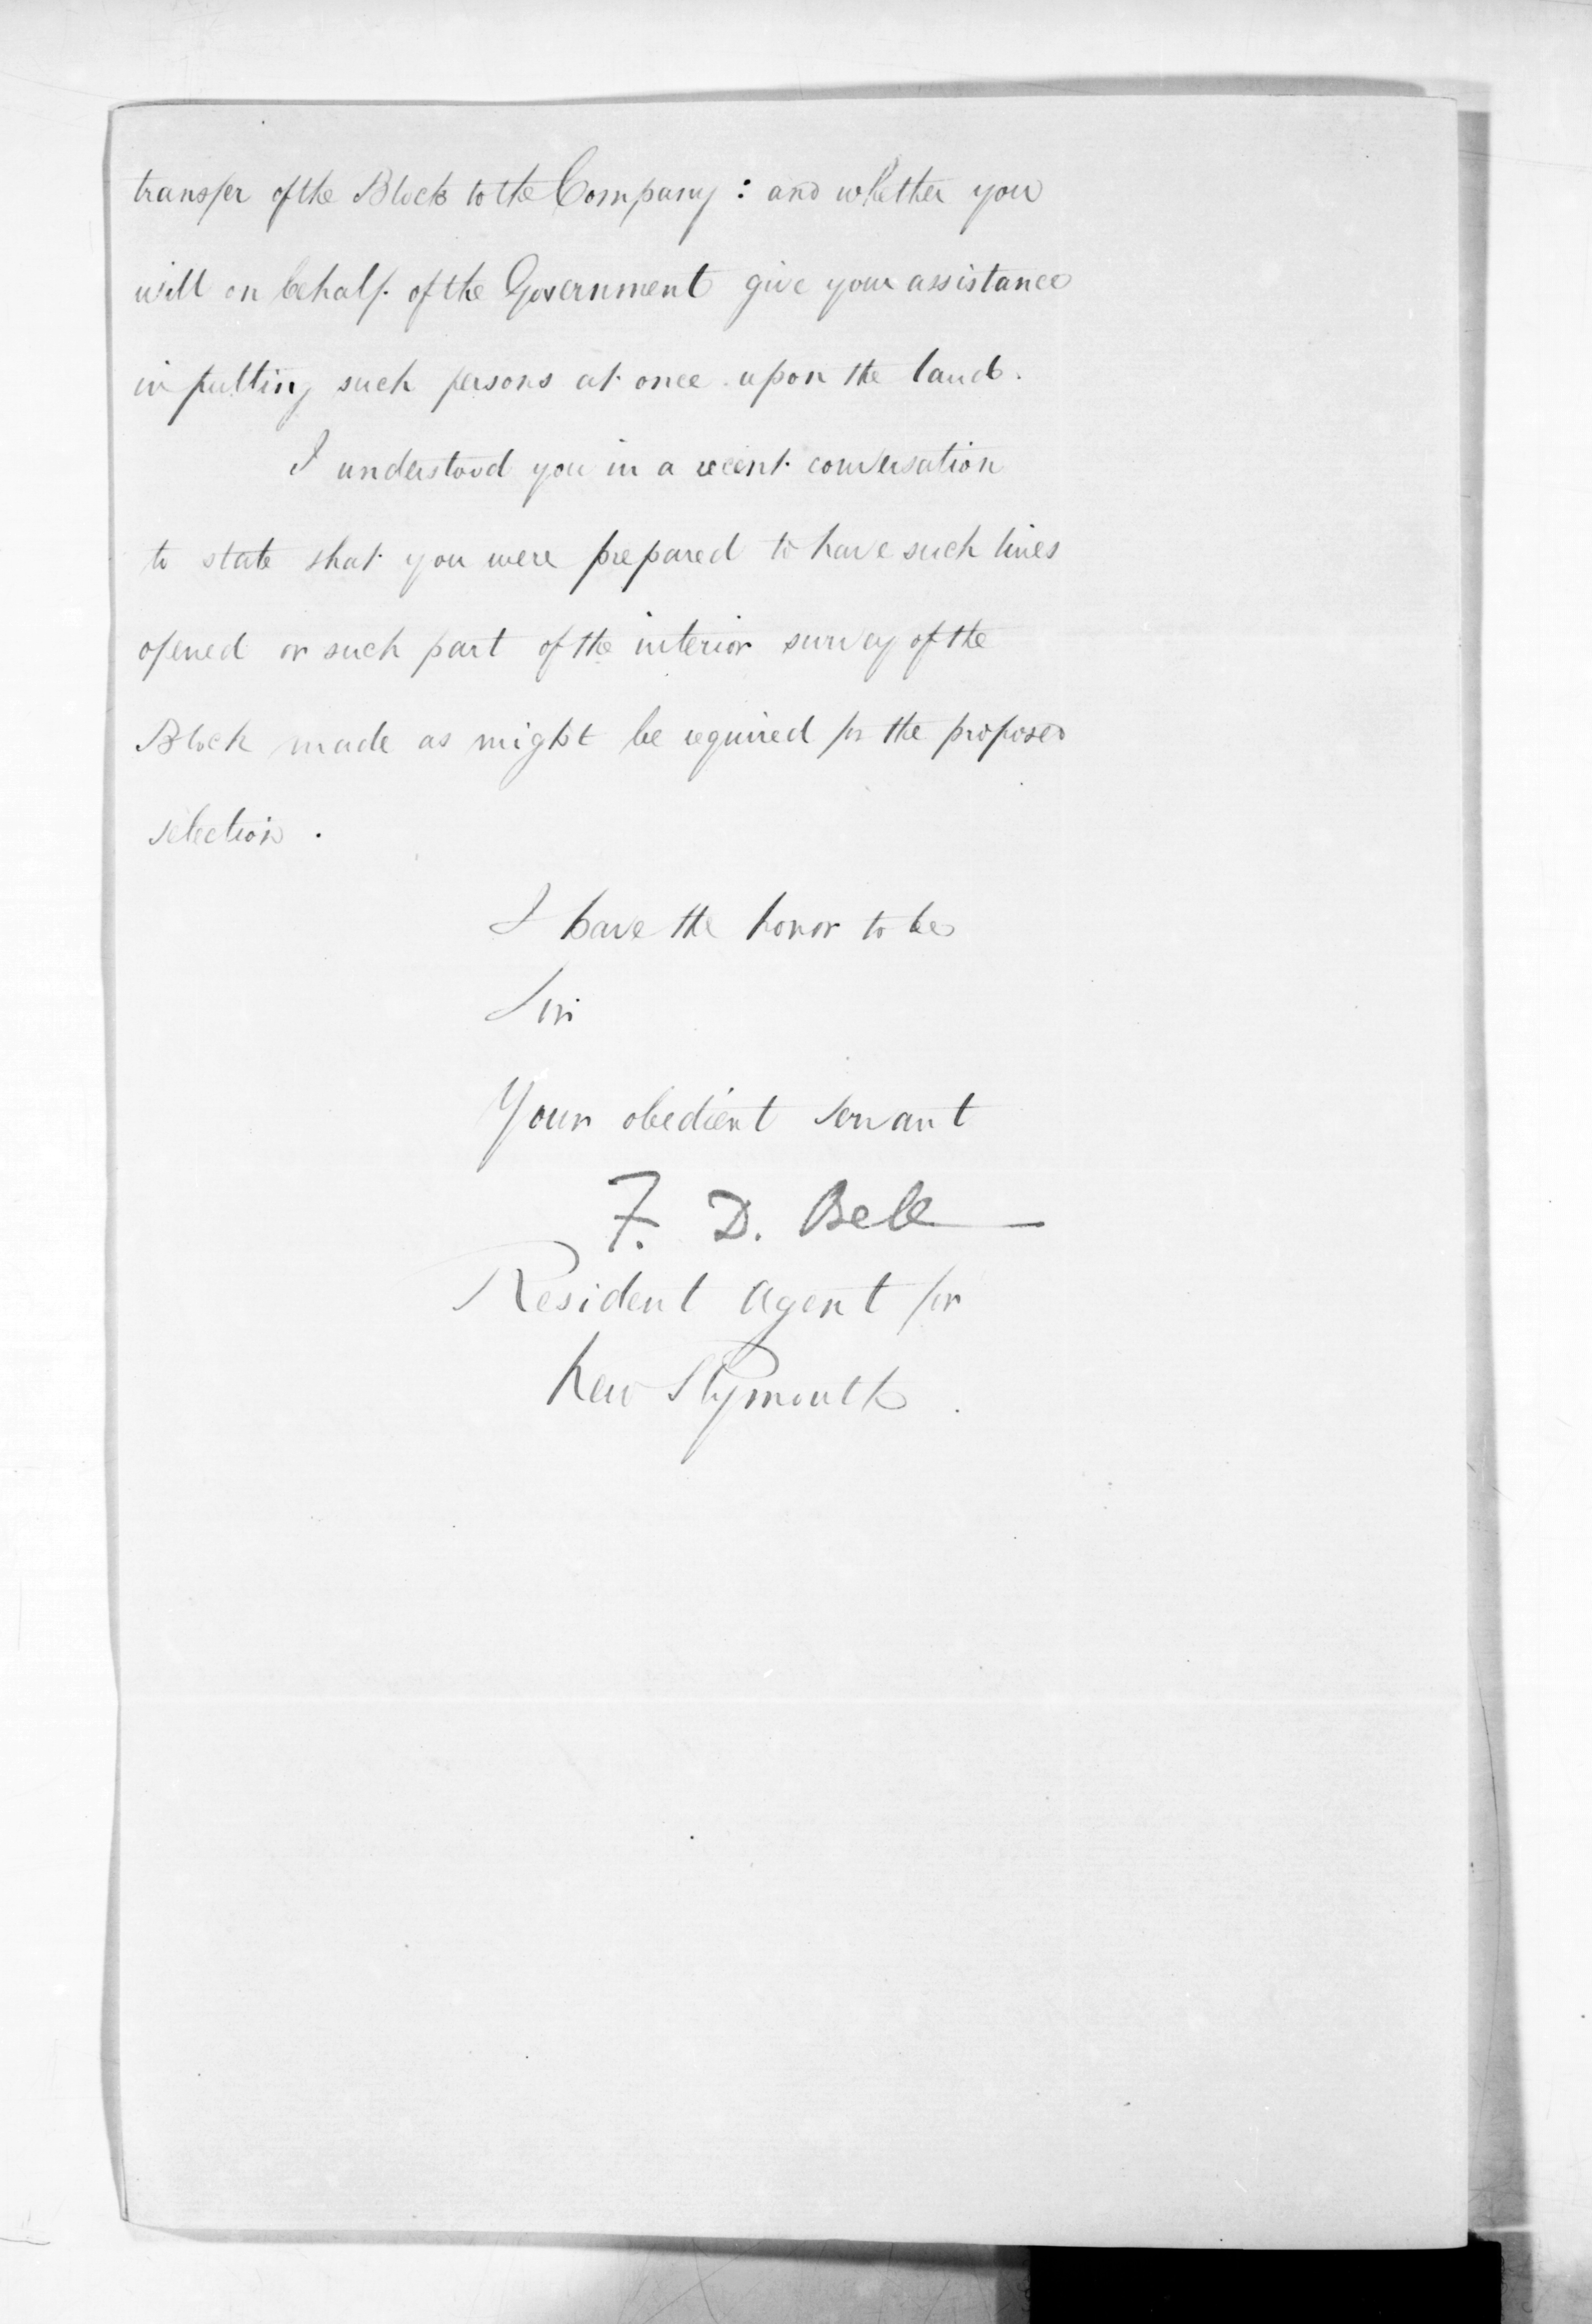 transfer of the Block to the Company : and whether you
will on behalf of the Government give your assistance
in putting such persons at once upon the land.
I understood you in a recent conversation
to state that you were prepared to have such lines
opened or such part of the interior survey of the
Block made as might be required for the proposed
selection .
I have the honor to be
Sir
Your obedient servant
F. D. Bell
Resident Agent for
New Plymouth .